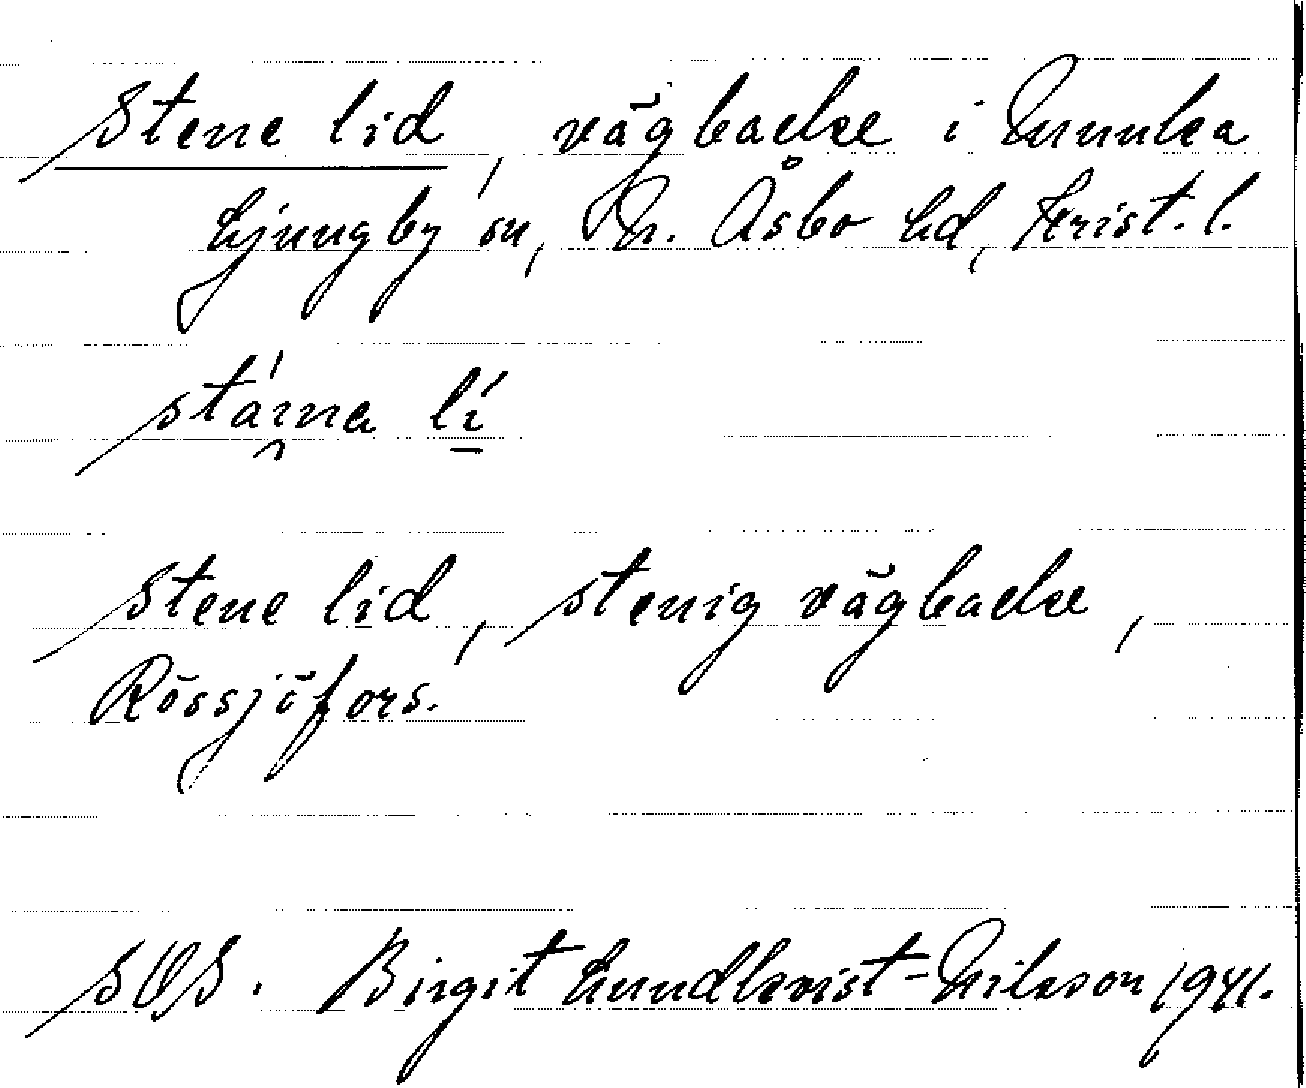 Stene lid, vägbacke i Munka
Ljungby sn, N. Åsbo hd, Krist. l.
stáina lí
Stene lid, stenig vägbacke,
Rössjöfors.
SOS. Birgit Lundkvist-Nilsson 1941.